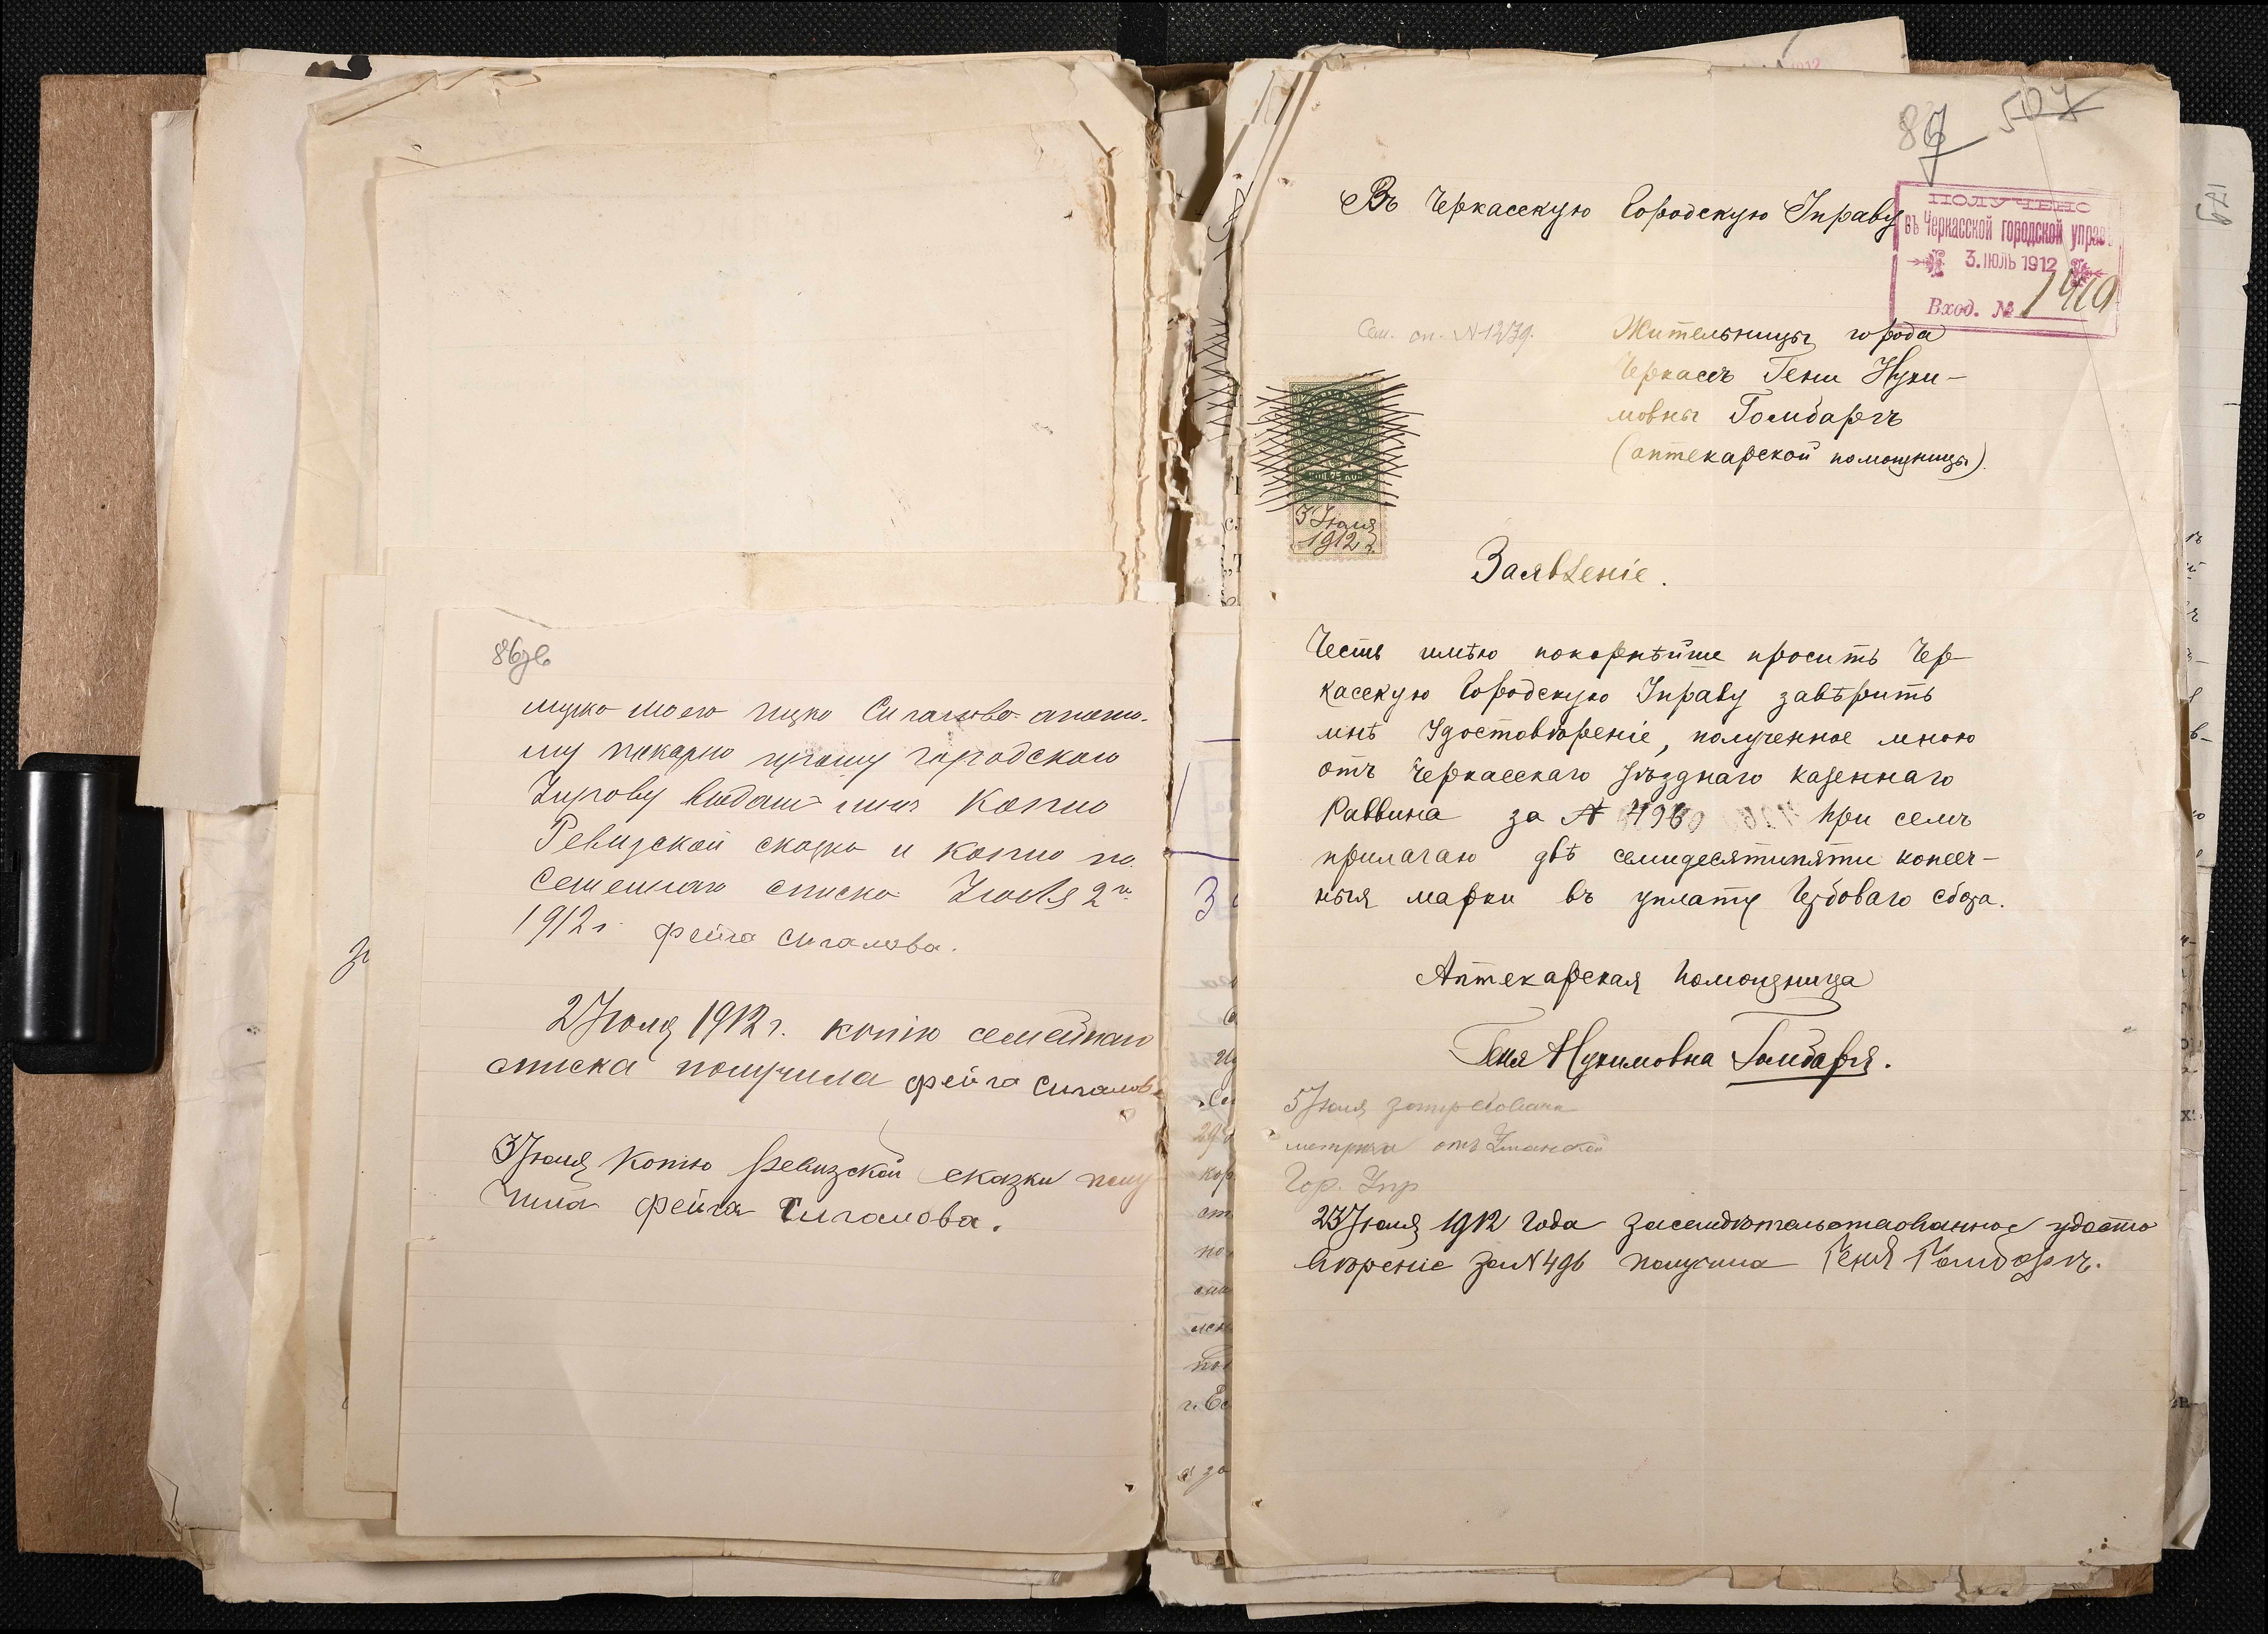 86об
мужа моего
му пекарю прошу городскою
Управу выдать мне копию
Ревизской сказки и копию по
семейнаго списка Июля 2го
1912 г. Фейга Сигалова.
2 Июля 1912 г. копію семейнаго
списка получила Фейга Сигалова
3 Июля копію ревизской сказки полу
чила Фейга Сигалова.
87
507
Въ Черкасскую Городскую Управу
ПОЛУЧЕНО
въ Черкасской городской управ
3. ІЮЛЬ 1912
Вход. №
Сем. сп. №
Жительницы города
Черкассъ Гени Нухи-
мовны Гомбаргъ
(аптекарской помощницы).
3 Июля
1912 г.
Заявленіе.
Честь имѣю покорнѣйше просить Чер-
касскую Городскую Управу завѣрить
мнѣ Удостовѣреніе, полученное мною
отъ Черкасскаго уѣзднаго казеннаго
Раввина за № 496 При семъ
прилагаю двѣ семидесятипяти копееч-
ныя марки въ уплату Гербоваго сбора.
Аптекарская помощница
Геня Нухимовна Гомбаргъ.
5 Июля затребована
метрика отъ Уманской
Гор. Упр
23 Июля 1912 года засвидѣтельствованное удосто
вѣреніе за № 496 получила Геня Гомбаргъ.